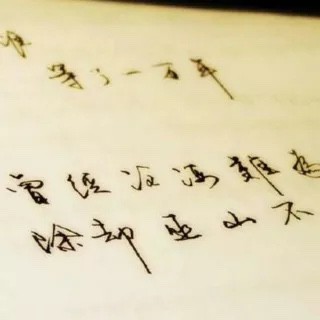 等了一百年
曾经沧海難為
除却巫山不